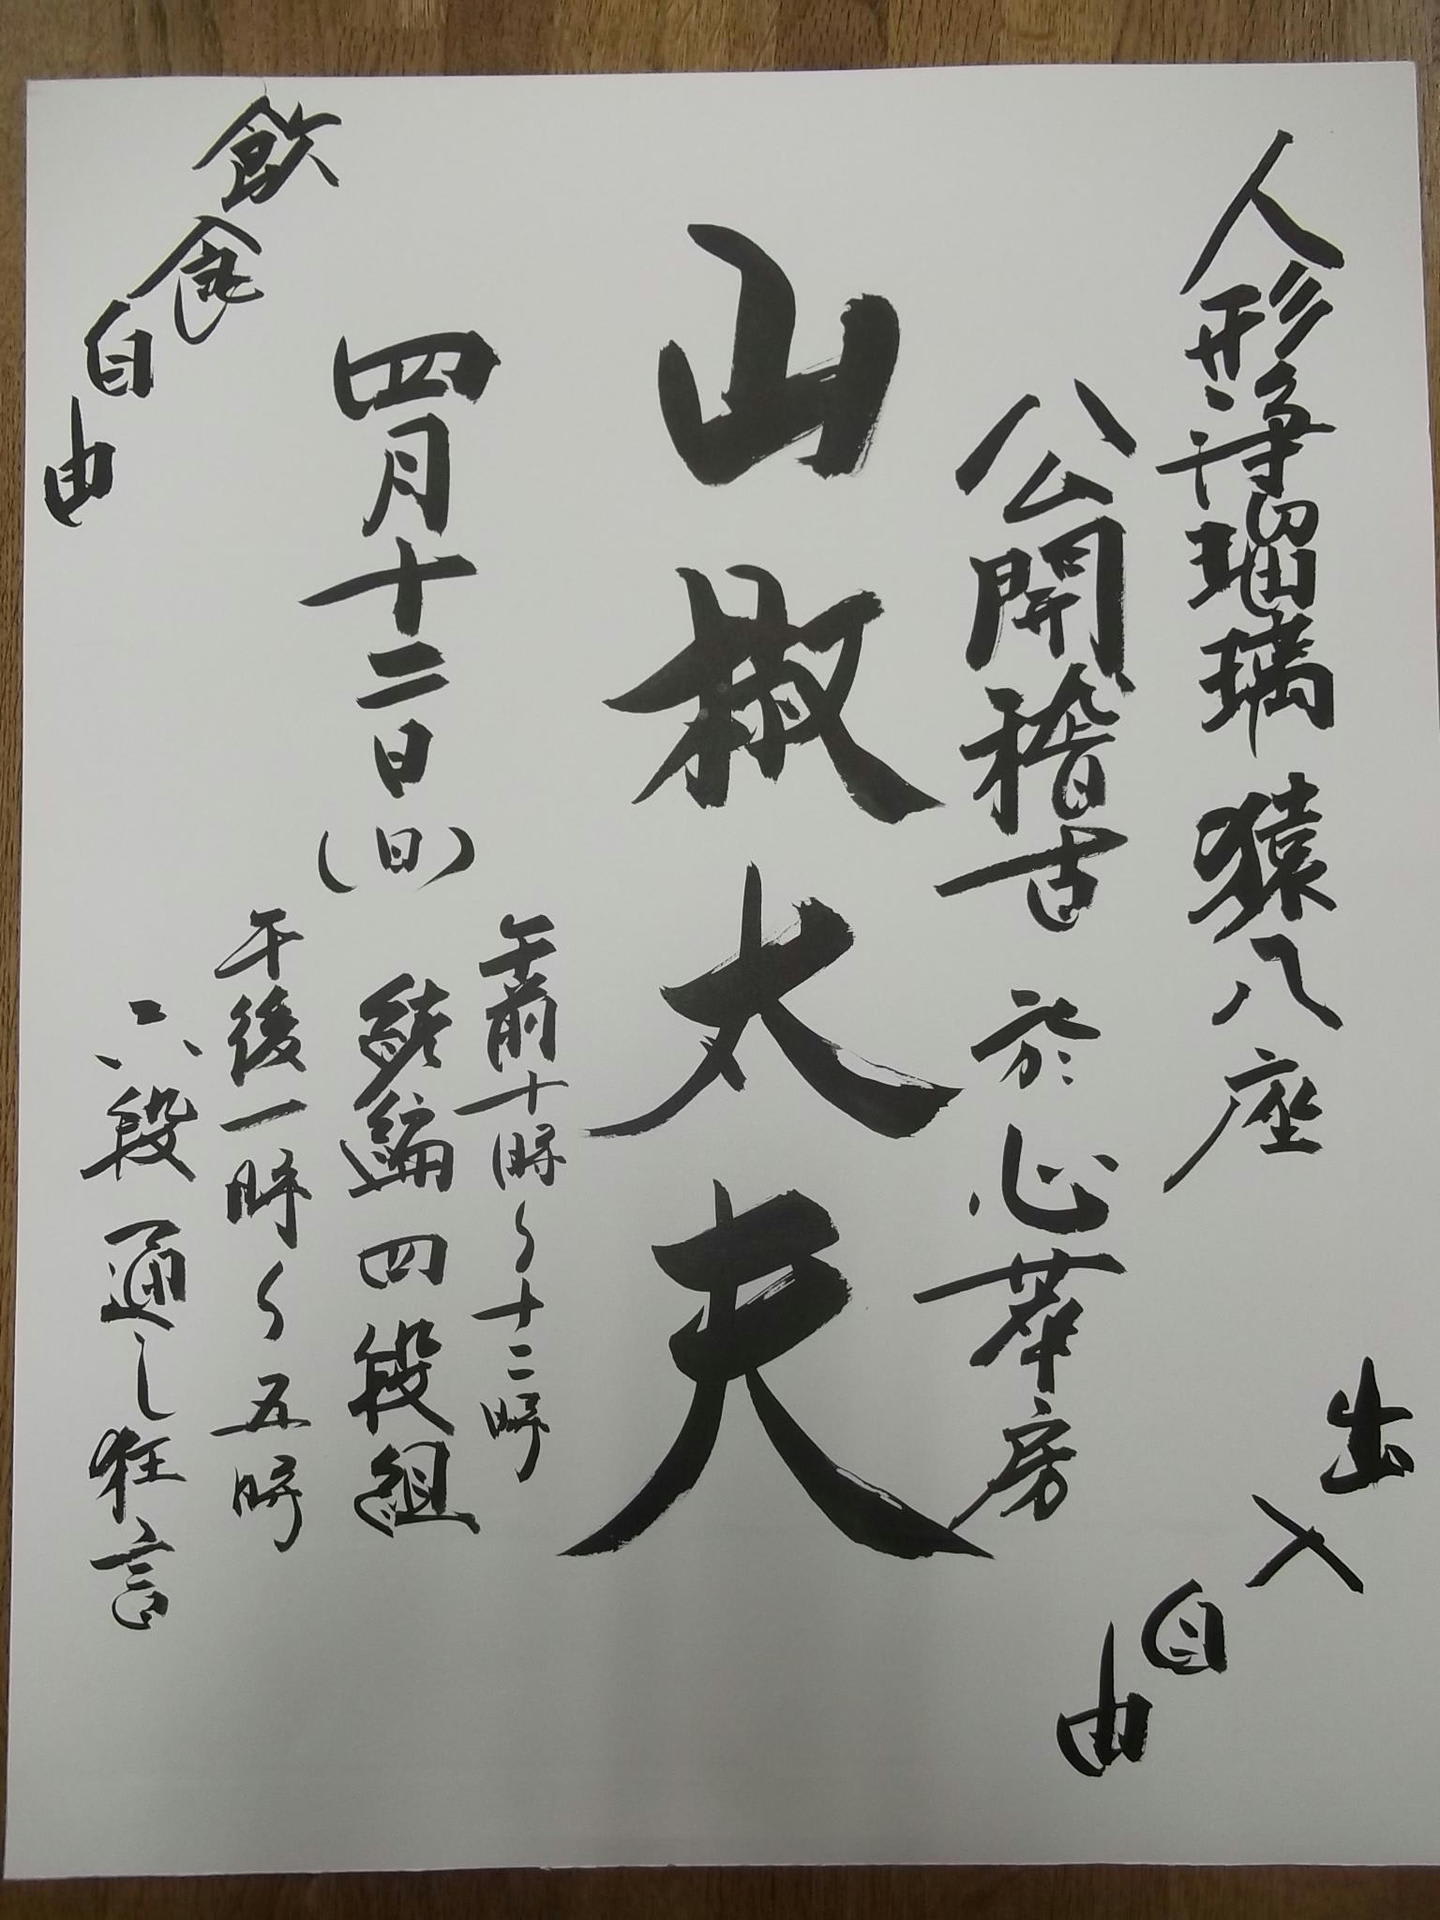 人形浄瑠璃 猿八座
公開稽古 於 心華房
山椒太夫
四月十二日(日)
午前十時〜十二時
続編四段組
午後一時〜五時
六段 通し狂言
飲食自由
出入自由